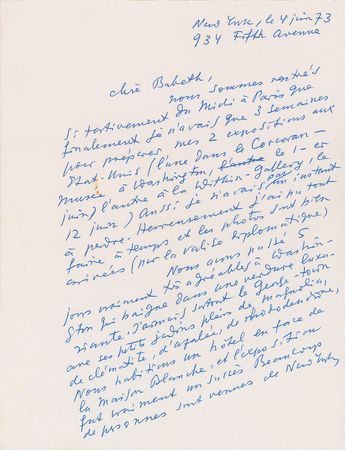 New York, le 4 juin 73
934 Fifth Avenue
Chère Babeth,
nous sommes rentrés
si tardivement du Midi à Paris que
finalement je n'avais que 3 semaines
pour préparer mes 2 expositions aux
Etats-Unis (l'une dans le Corcoran-
musée à Washington, l'autre le 1-er
juin, l'autre à la Witkin-Gallery, le
12 juin) Aussi je n'avais pas un instant
à perdre. Heureusement j'ai pu tout
faire à temps et les photos sont bien
arrivées (par la valise diplomatique)
Nous avons passé 5
jours vraiment très agréables à Washin-
gton qui baigne dans une verdure luxu-
riante. J'aimais surtout le George-town
avec ses petits jardins pleins de magnolia,
de clématite, d'azalées, de rhododendrons,
Nous habitions un hôtel en face de
la Maison Blanche, et l'exposition
fut vraiment un succès Beaucoup
de personnes sont venues de New York,